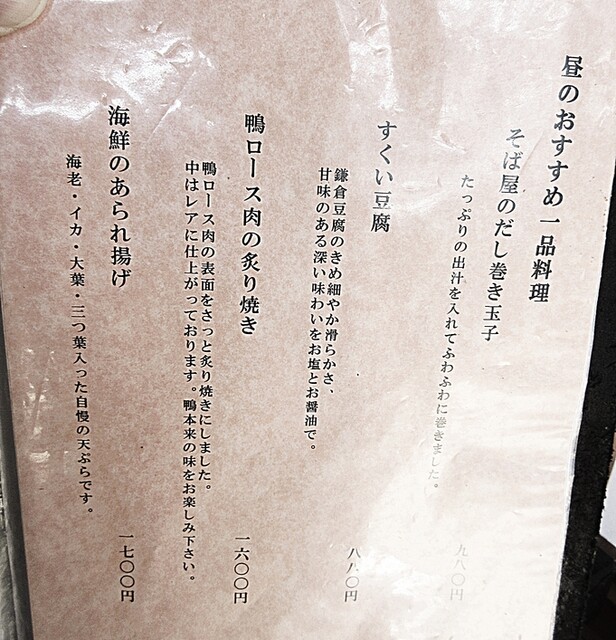 昼のおすすめ一品料理
そば屋のだし巻き玉子
たっぷりの出汁を入れてふわふわに巻きました。
九八〇円
すくい豆腐
鎌倉豆腐のきめ細やか滑らかさ、
甘味のある深い味わいをお塩とお醤油で。
八八〇円
鴨ロース肉の炙り焼き
鴨ロース肉の表面をさっと炙り焼きにしました。
中はレアに仕上がっております。鴨本来の味をお楽しみ下さい。
一六〇〇円
海鮮のあられ揚げ
海老・イカ・大葉・三つ葉入った自慢の天ぷらです。
一七〇〇円